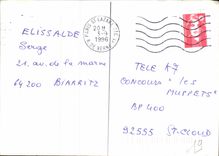 ELISSALDE
Serge
21, av. de la marne
64200 BIARRITZ
PARIS ST LAZARE
R DE BERNE
20H
1996
TELE K7
CONCOURS "les
MUPPETS"
BP 400
92555 St-CLOUD